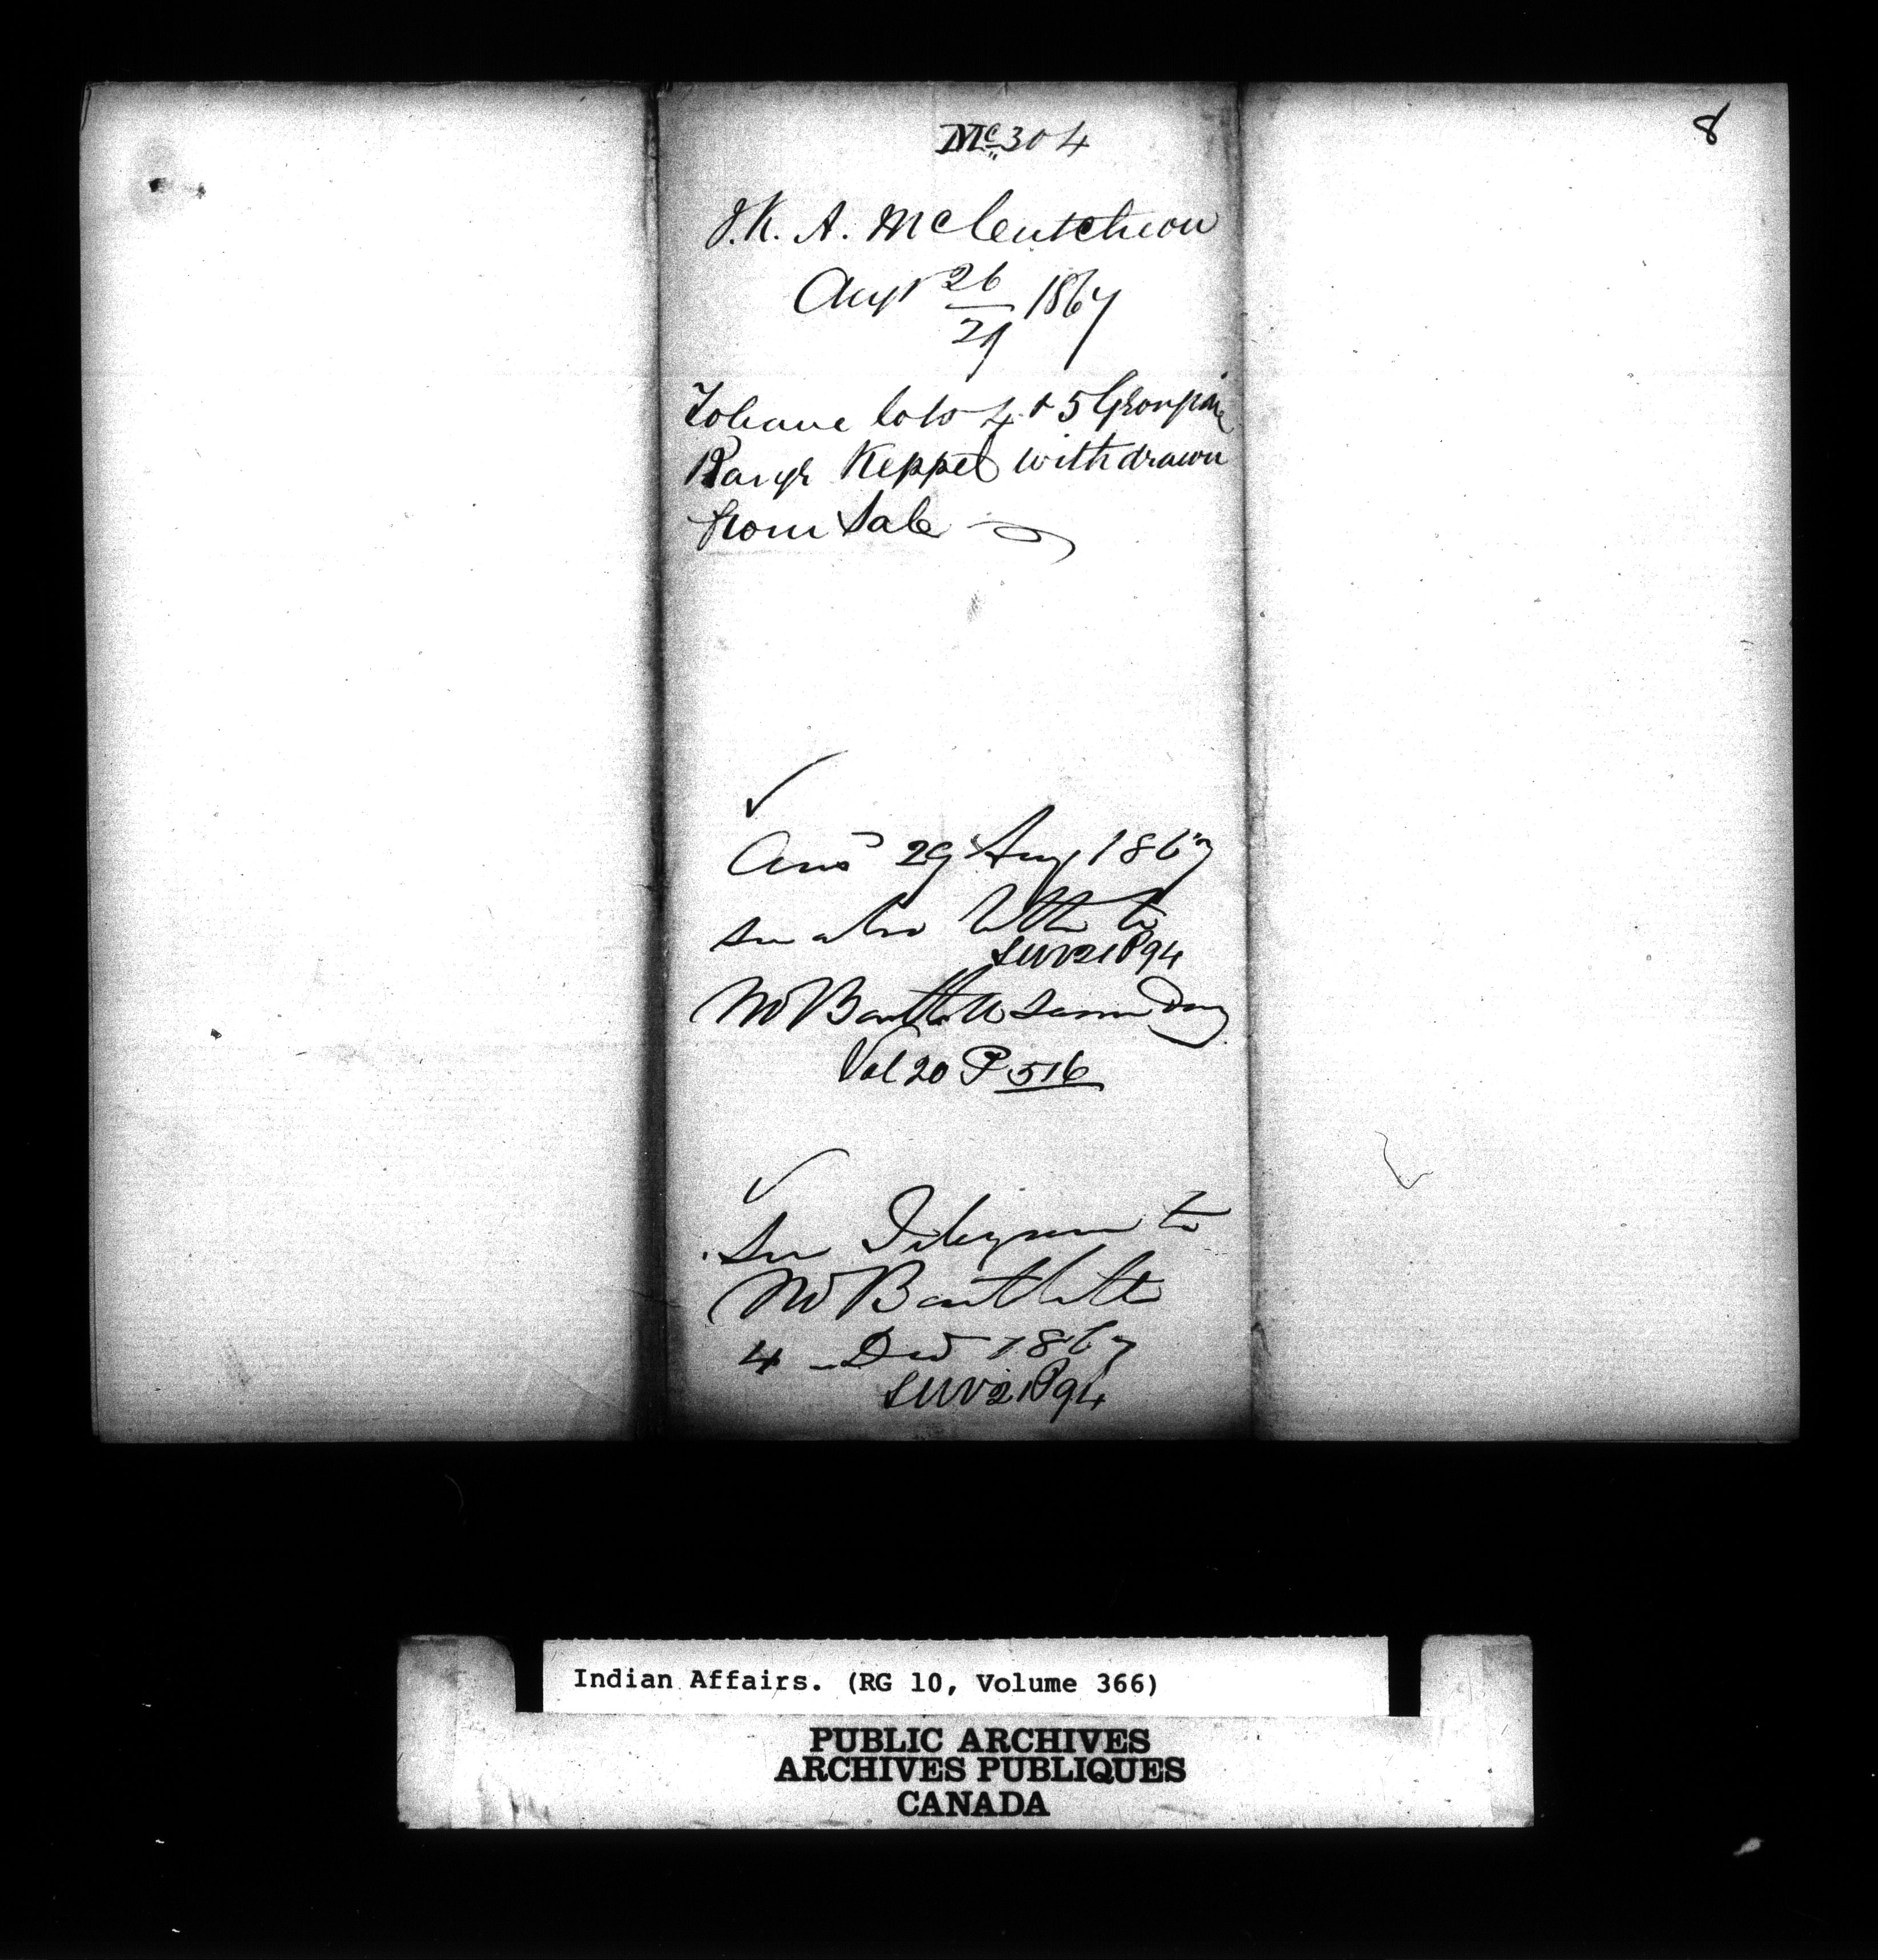 8
Mc 304
J. K. A. McCutcheon
Augt 26/29 1867
To have lots 4 & 5 Georgian
Range Keppel withdrawn
from Sale
Ansd 29 Aug 1867
See also letter to
LWV21P94
Mr Bartlett same Day
Vol 20 P 516
See Telegram to
Mr Bartlett
4 Decr 1867
LWV21P94
Indian Affairs. (RG 10, Volume 366)
PUBLIC ARCHIVES
ARCHIVES PUBLIQUES
CANADA